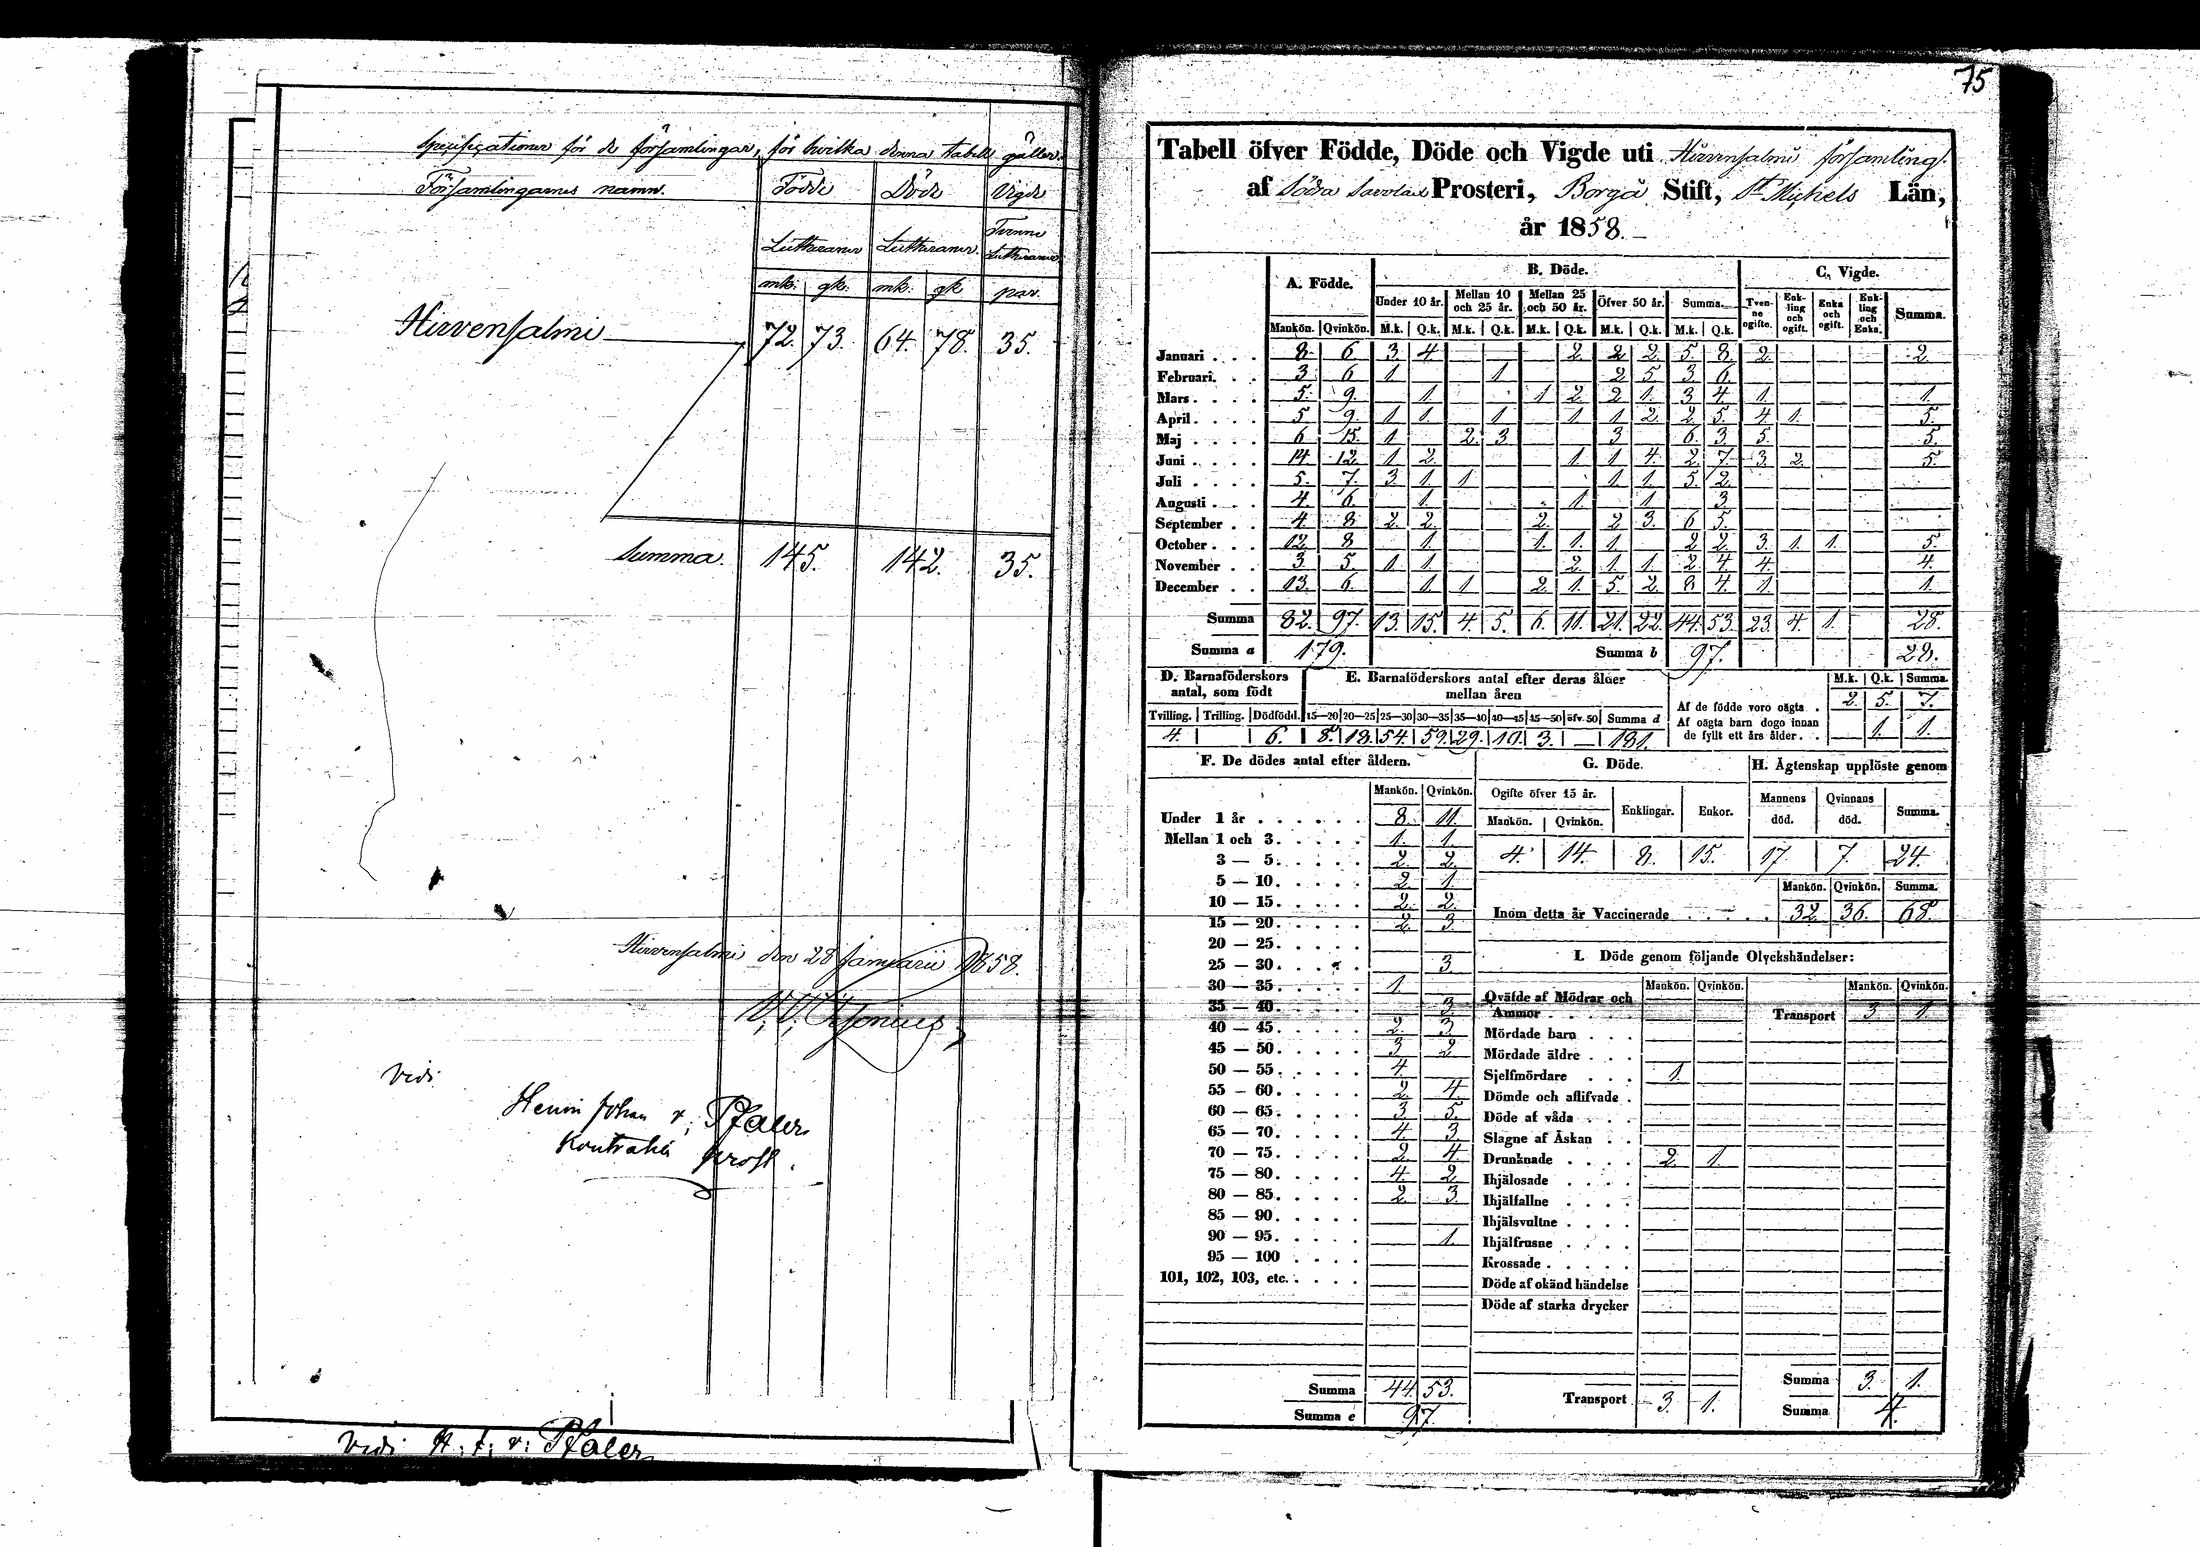 Specificationer för de församlingar, för hvilka denna tabell gäller.
Församlingarnes namn. Födde Döde Vigde
Lutheraner Lutheraner. Tvenne Lutheraner
mk: qk: mk: qk par.
Hirvensalmi 72. 73. 64. 78. 35.
Summa. 145. 142. 35.
Hirvensalmi den 28 Januarii 1858.
Vidi
Henric Johan v; Pfaler
Kontrakts prost.
Vidi H; J; v; Pfaler
75
Tabell öfver Födde, Döde och Vigde uti Hirvensalmi församling
af Södra Savolax Prosteri, Borgå Stift, St Michels Län,
år 1858.
A. Födde. B. Döde. C. Vigde.
Under 10 år. Mellan 10 och 25 år. Mellan 25 och 50 år. Öfver 50 år. Summa. Tvenne ogifte. Enkling och ogift. Enka och ogift. Enkling och Enka. Summa.
Mankön. Qvinkön. M.k. Q.k. M.k. Q.k. M.k. Q.k. M.k. Q.k. M.k. Q.k.
Januari . . . 8. 6. 3. 4. 2. 2 2. 5. 8. 2. 2.
Februari. . . 3. 6. 1. 1 2 5. 3 6.
Mars . . . . 5. 9. 1. 1 2. 2 1. 3 4. 1. 1.
April. . . . 5. 9. 1 1. 1. 1 1 2. 2 5. 4 1. 5.
Maj . . . . 6 15. 1 2. 3 3 6. 3. 5. 5.
Juni . . . . 14 12. 1 2. 1. 1 4. 2. 7. 3. 2. 5.
Juli . . . . 5. 7. 3. 1. 1 1 1. 5. 2.
Augusti . . . 4. 6. 1. 1. 1. 3.
September . . 4 8. 2. 2. 2. 2 3. 6 5.
October . . . 12. 8 1. 1. 1. 1. 2 2. 3. 1. 1. 5.
November . . 3 5. 1. 1. 2. 1. 1. 2 4. 4. 4.
December . . 13. 6. 1. 1 2. 1. 5. 2. 8 4. 1. 1.
Summa 82. 97. 13. 15. 4. 5. 6. 11. 21. 22. 44. 53. 23. 4. 1. 28.
Summa a 179. Summa b 97. 28.
D. Barnaföderskors antal, som födt E. Barnaföderskors antal efter deras ålder mellan åren M.k. Q.k. Summa.
Tvilling. Trilling. Dödfödd. 15—20 20—25 25—30 30—35 35—40 40—45 45—50 öfv. 50 Summa d
4. 6. 8. 18. 54. 59. 29. 10. 3. — 181.
Af de födde voro oägta . 2. 5. 7.
Af oägta barn dogo innan de fyllt ett års ålder . . 1. 1.
F. De dödes antal efter åldern.
Mankön. Qvinkön.
Under 1 år . . . . . . 8. 11.
Mellan 1 och 3. . . . . 1. 1.
3 — 5. . . . . 2. 2.
5 — 10. . . . . 2. 1.
10 — 15. . . . . 2. 2.
15 — 20. . . . . 2. 3.
20 — 25. . . . .
25 — 30. . . . . 3
30 — 35. . . . . 1.
35 — 40. . . . . 3.
40 — 45. . . . . 2. 3
45 — 50. . . . . 3 2
50 — 55. . . . . 4.
55 — 60. . . . . 2. 4.
60 — 65. . . . . 3. 5.
65 — 70. . . . . 4. 3
70 — 75. . . . . 2 4.
75 — 80. . . . . 4. 2
80 — 85. . . . . 2. 3.
85 — 90. . . . .
90 — 95. . . . . 1.
95 — 100 . . . .
101, 102, 103, etc. . . . .
Summa 44. 53.
Summa e 97.
G. Döde. H. Ägtenskap upplöste genom
Ogifte öfver 15 år. Enklingar. Enkor. Mannens död. Qvinnans död. Summa.
Mankön. Qvinkön.
4. 14. 8. 15. 17. 7. 24.
Mankön. Qvinkön. Summa.
Inom detta år Vaccinerade . . . . . 32. 36. 68.
I. Döde genom följande Olyckshändelser:
Mankön. Qvinkön. Mankön. Qvinkön.
Qväfde af Mödrar och Ammor . . . . Transport 3 1.
Mördade barn . . .
Mördade äldre . . .
Sjelfmördare . . . 1.
Dömde och aflifvade .
Döde af våda . . .
Slagne af Åskan . .
Drunknade . . . . 2. 1.
Ihjälosade . . . .
Ihjälfallne . . . .
Ihjälsvultne . . . .
Ihjälfrusne . . . .
Krossade . . . . .
Döde af okänd händelse
Döde af starka drycker
Summa 3. 1.
Transport 3. 1. Summa 4.